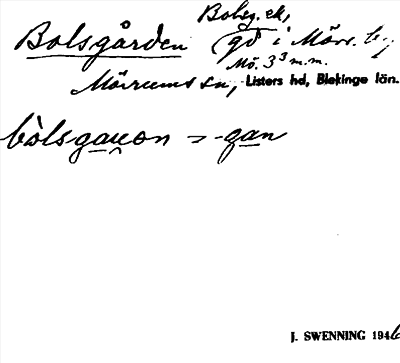 Bolsg. ek,
Bolsgården gd i Mörr. by
Mö. 3³ m.m.
Mörrums sn, Listers hd, Blekinge län.
bòlsgau̯on > -gan
J. SWENNING 1946